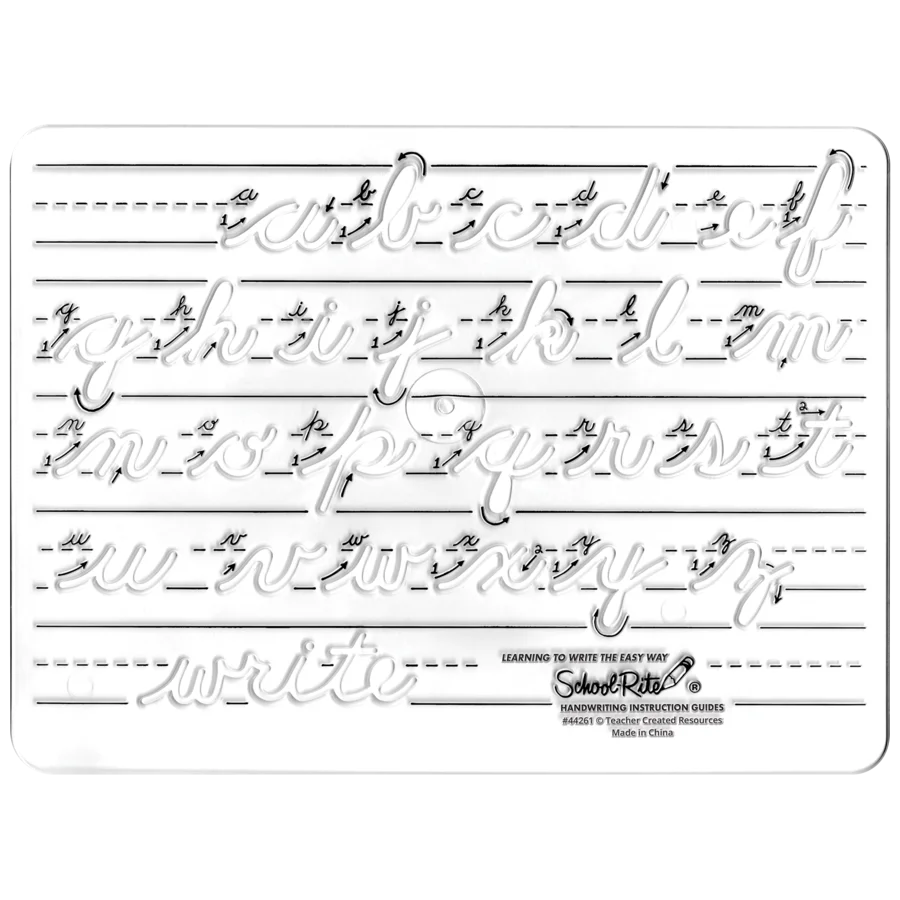 a 1 a b 1 b c c d 1 d e e f 1 f
g 1 g h 1 h i i j 1 j k 1 k l l m 1 m
n 1 n o o p 1 p q 1 q r r s s t 1 2 t
u u v v w w x 1 2 x y 1 y z 1 z
write
LEARNING TO WRITE THE EASY WAY
School-Rite ®
HANDWRITING INSTRUCTION GUIDES
#44261 © Teacher Created Resources
Made in China